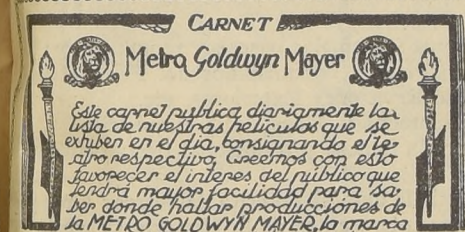 CARNET
Metro Goldwyn Mayer
Este carnet publica diariamente la
lista de nuestras peliculas que se
exhiben en el dia, consignando el te-
atro respectivo. Creemos con esto
favorecer el interes del publico que
tendrá mayor facilidad para sa-
ber donde hallar producciónes de
la METRO GOLDWYN MAYER, la marca